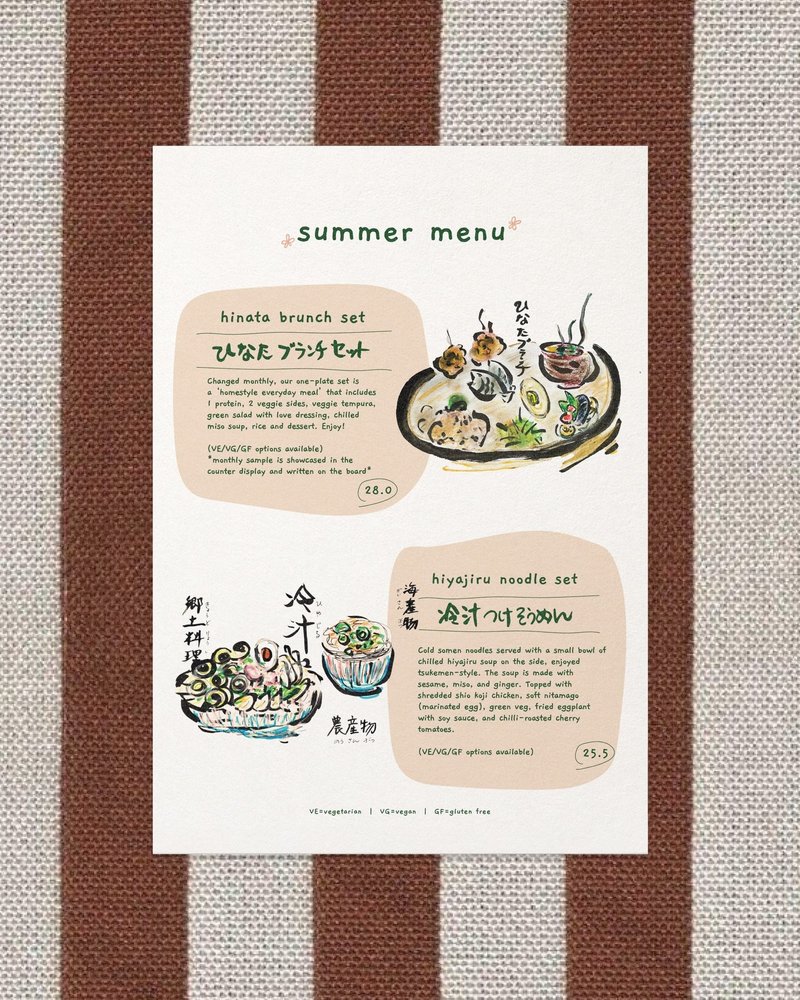 summer menu
hinata brunch set
ひなた ブランチ セット
Changed monthly, our one-plate set is
a 'homestyle everyday meal' that includes
1 protein, 2 veggie sides, veggie tempura,
green salad with love dressing, chilled
miso soup, rice and dessert. Enjoy!
(VE/VG/GF options available)
*monthly sample is showcased in the
counter display and written on the board*
28.0
ひなたブランチ
郷土料理
冷汁
ひやじる
農産物
のうさんぶつ
海産物
hiyajiru noodle set
冷汁つけそうめん
Cold somen noodles served with a small bowl of
chilled hiyajiru soup on the side, enjoyed
tsukemen-style. The soup is made with
sesame, miso, and ginger. Topped with
shredded shio koji chicken, soft nitamago
(marinated egg), green veg, fried eggplant
with soy sauce, and chilli-roasted cherry
tomatoes.
(VE/VG/GF options available)
25.5
VE=vegetarian | VG=vegan | GF=gluten free